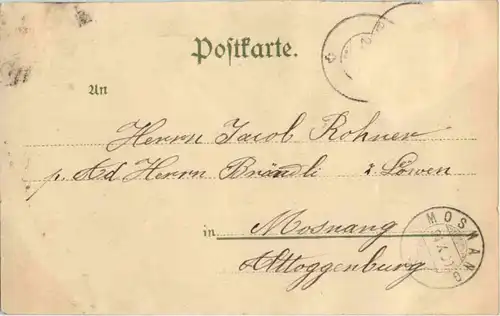 Postkarte.
An
Herrn Jacob Rohner
p. Ad Herrn Brändli z. Löwen
in Mosnang
Alttoggenburg
MOSNANG